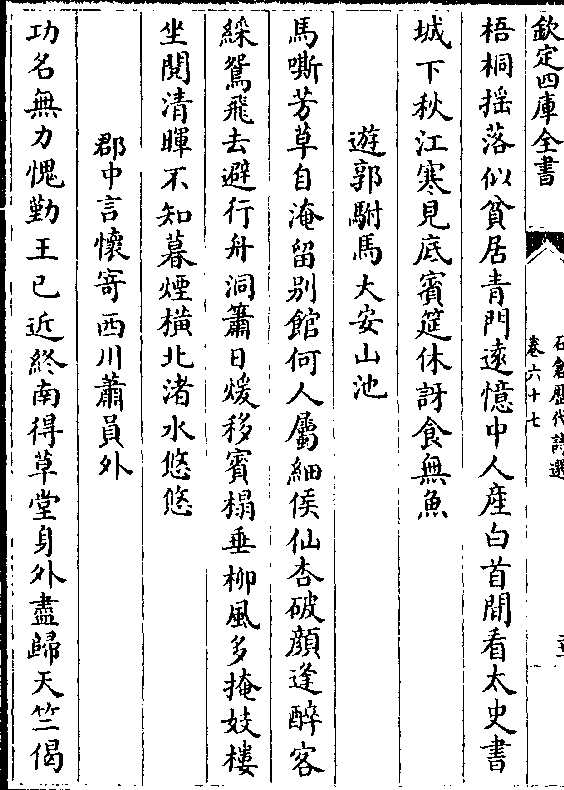 欽定四庫全書
石倉歷代詩選
卷六十七
梧桐揺落似貧居青門遠憶中人產白首閒看太史書
城下秋江寒見底賓筵休訝食無魚
遊郭駙馬大安山池
馬嘶芳草自淹留别館何人屬細侯仙杏破顔逢醉客
綵鴛飛去避行舟洞簫日煖移賓榻垂柳風多掩妓樓
坐閱清暉不知暮煙橫北渚水悠悠
郡中言懷寄西川蕭員外
功名無力愧勤王已近終南得草堂身外盡歸天竺偈